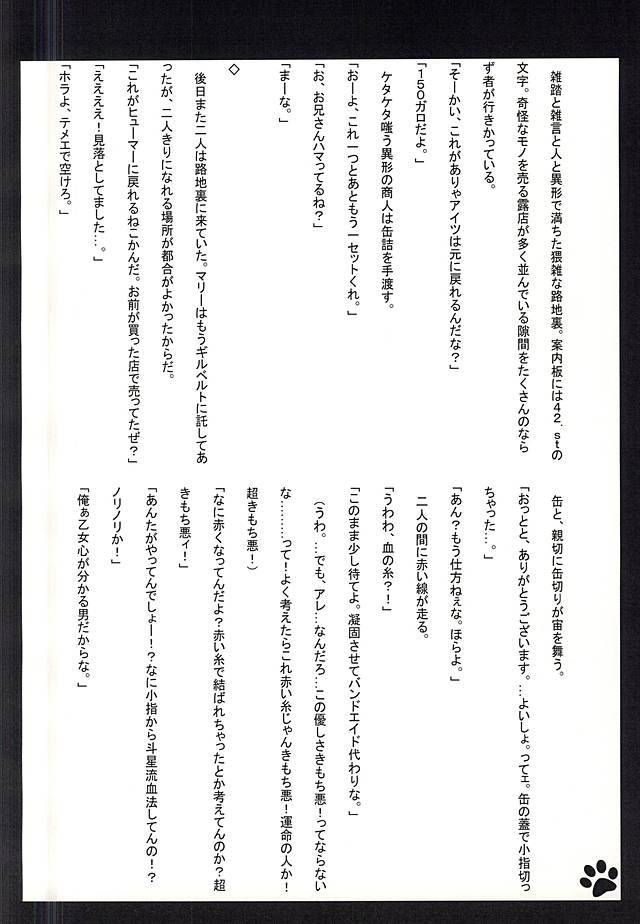 雑踏と雑言と人と異形で満ちた猥雑な路地裏。案内板には４２．ｓｔの
文字。奇怪なモノを売る露店が多く並んでいる隙間をたくさんのなら
ず者が行きかっている。
「そーかい、これがありゃアイツは元に戻れるんだな？」
「１５０ガロだよ。」
ケタケタ嗤う異形の商人は缶詰を手渡す。
「おーよ、これ一つとあともう一セットくれ。」
「お、お兄さんハマってるね？」
「まーな。」
◇
後日また二人は路地裏に来ていた。マリーはもうギルベルトに託してあ
ったが、二人きりになれる場所が都合がよかったからだ。
「これがヒューマーに戻れるねこかんだ。お前が買った店で売ってたぜ？」
「ええええ！見落としてました…。」
「ホラよ、テメエで空けろ。」
缶と、親切に缶切りが宙を舞う。
「おっとと、ありがとうございます。…よいしょ。ってェ。缶の蓋で小指切っ
ちゃった…。」
「あん？もう仕方ねぇな。ほらよ。」
二人の間に赤い線が走る。
「うわわ、血の糸？！」
「このまま少し待てよ。凝固させてバンドエイド代わりな。」
（うわ。…でも、アレ…なんだろ…この優しさきもち悪！ってならない
な………って！よく考えたらこれ赤い糸じゃんきもち悪！運命の人か！
超きもち悪！）
「なに赤くなってんだよ？赤い糸で結ばれちゃったとか考えてんのか？超
きもち悪ィ！」
「あんたがやってんでしょー！？なに小指から斗流血法してんの！？
ノリノリか！」
「俺ぁ乙女心が分かる男だからな。」